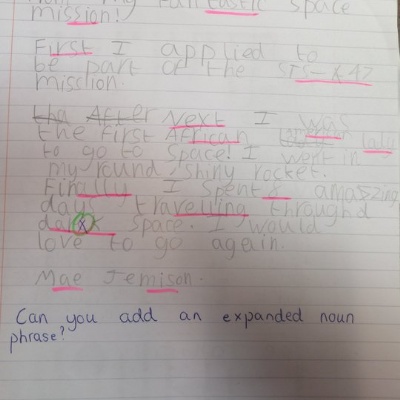 my fantastic space
mission!
First I applied to
be part of the STS-47
misction.
After Next I was
the first African lady
to go to space! I went in
my round shiny rocket.
Finally I spent 8 amazing
days travelling through
dark space. I would
love to go again.
Mae Jemison.
Can you add an expanded noun
phrase?